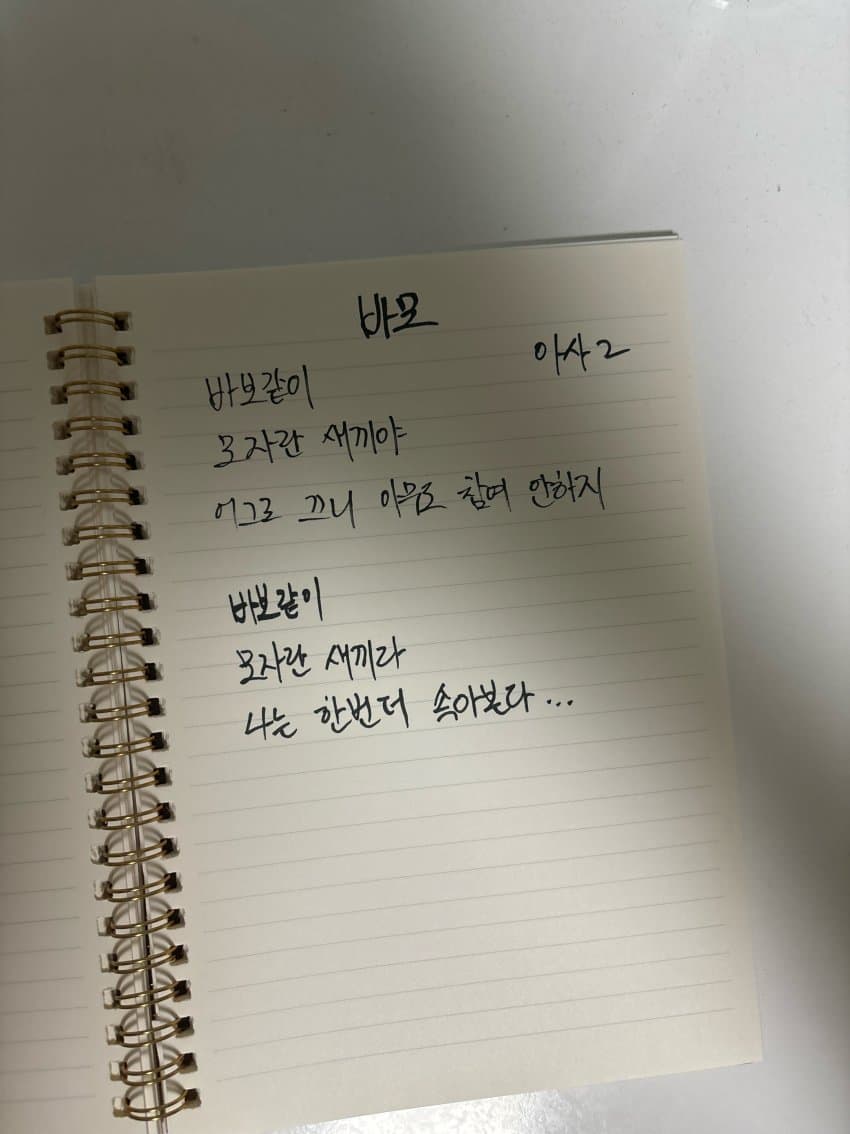 바모
아사2
바보같이
모자란 새끼야
어그로 끄니 아무도 참여 안하지
바보같이
모자란 새끼라
나는 한번더 속아본다...